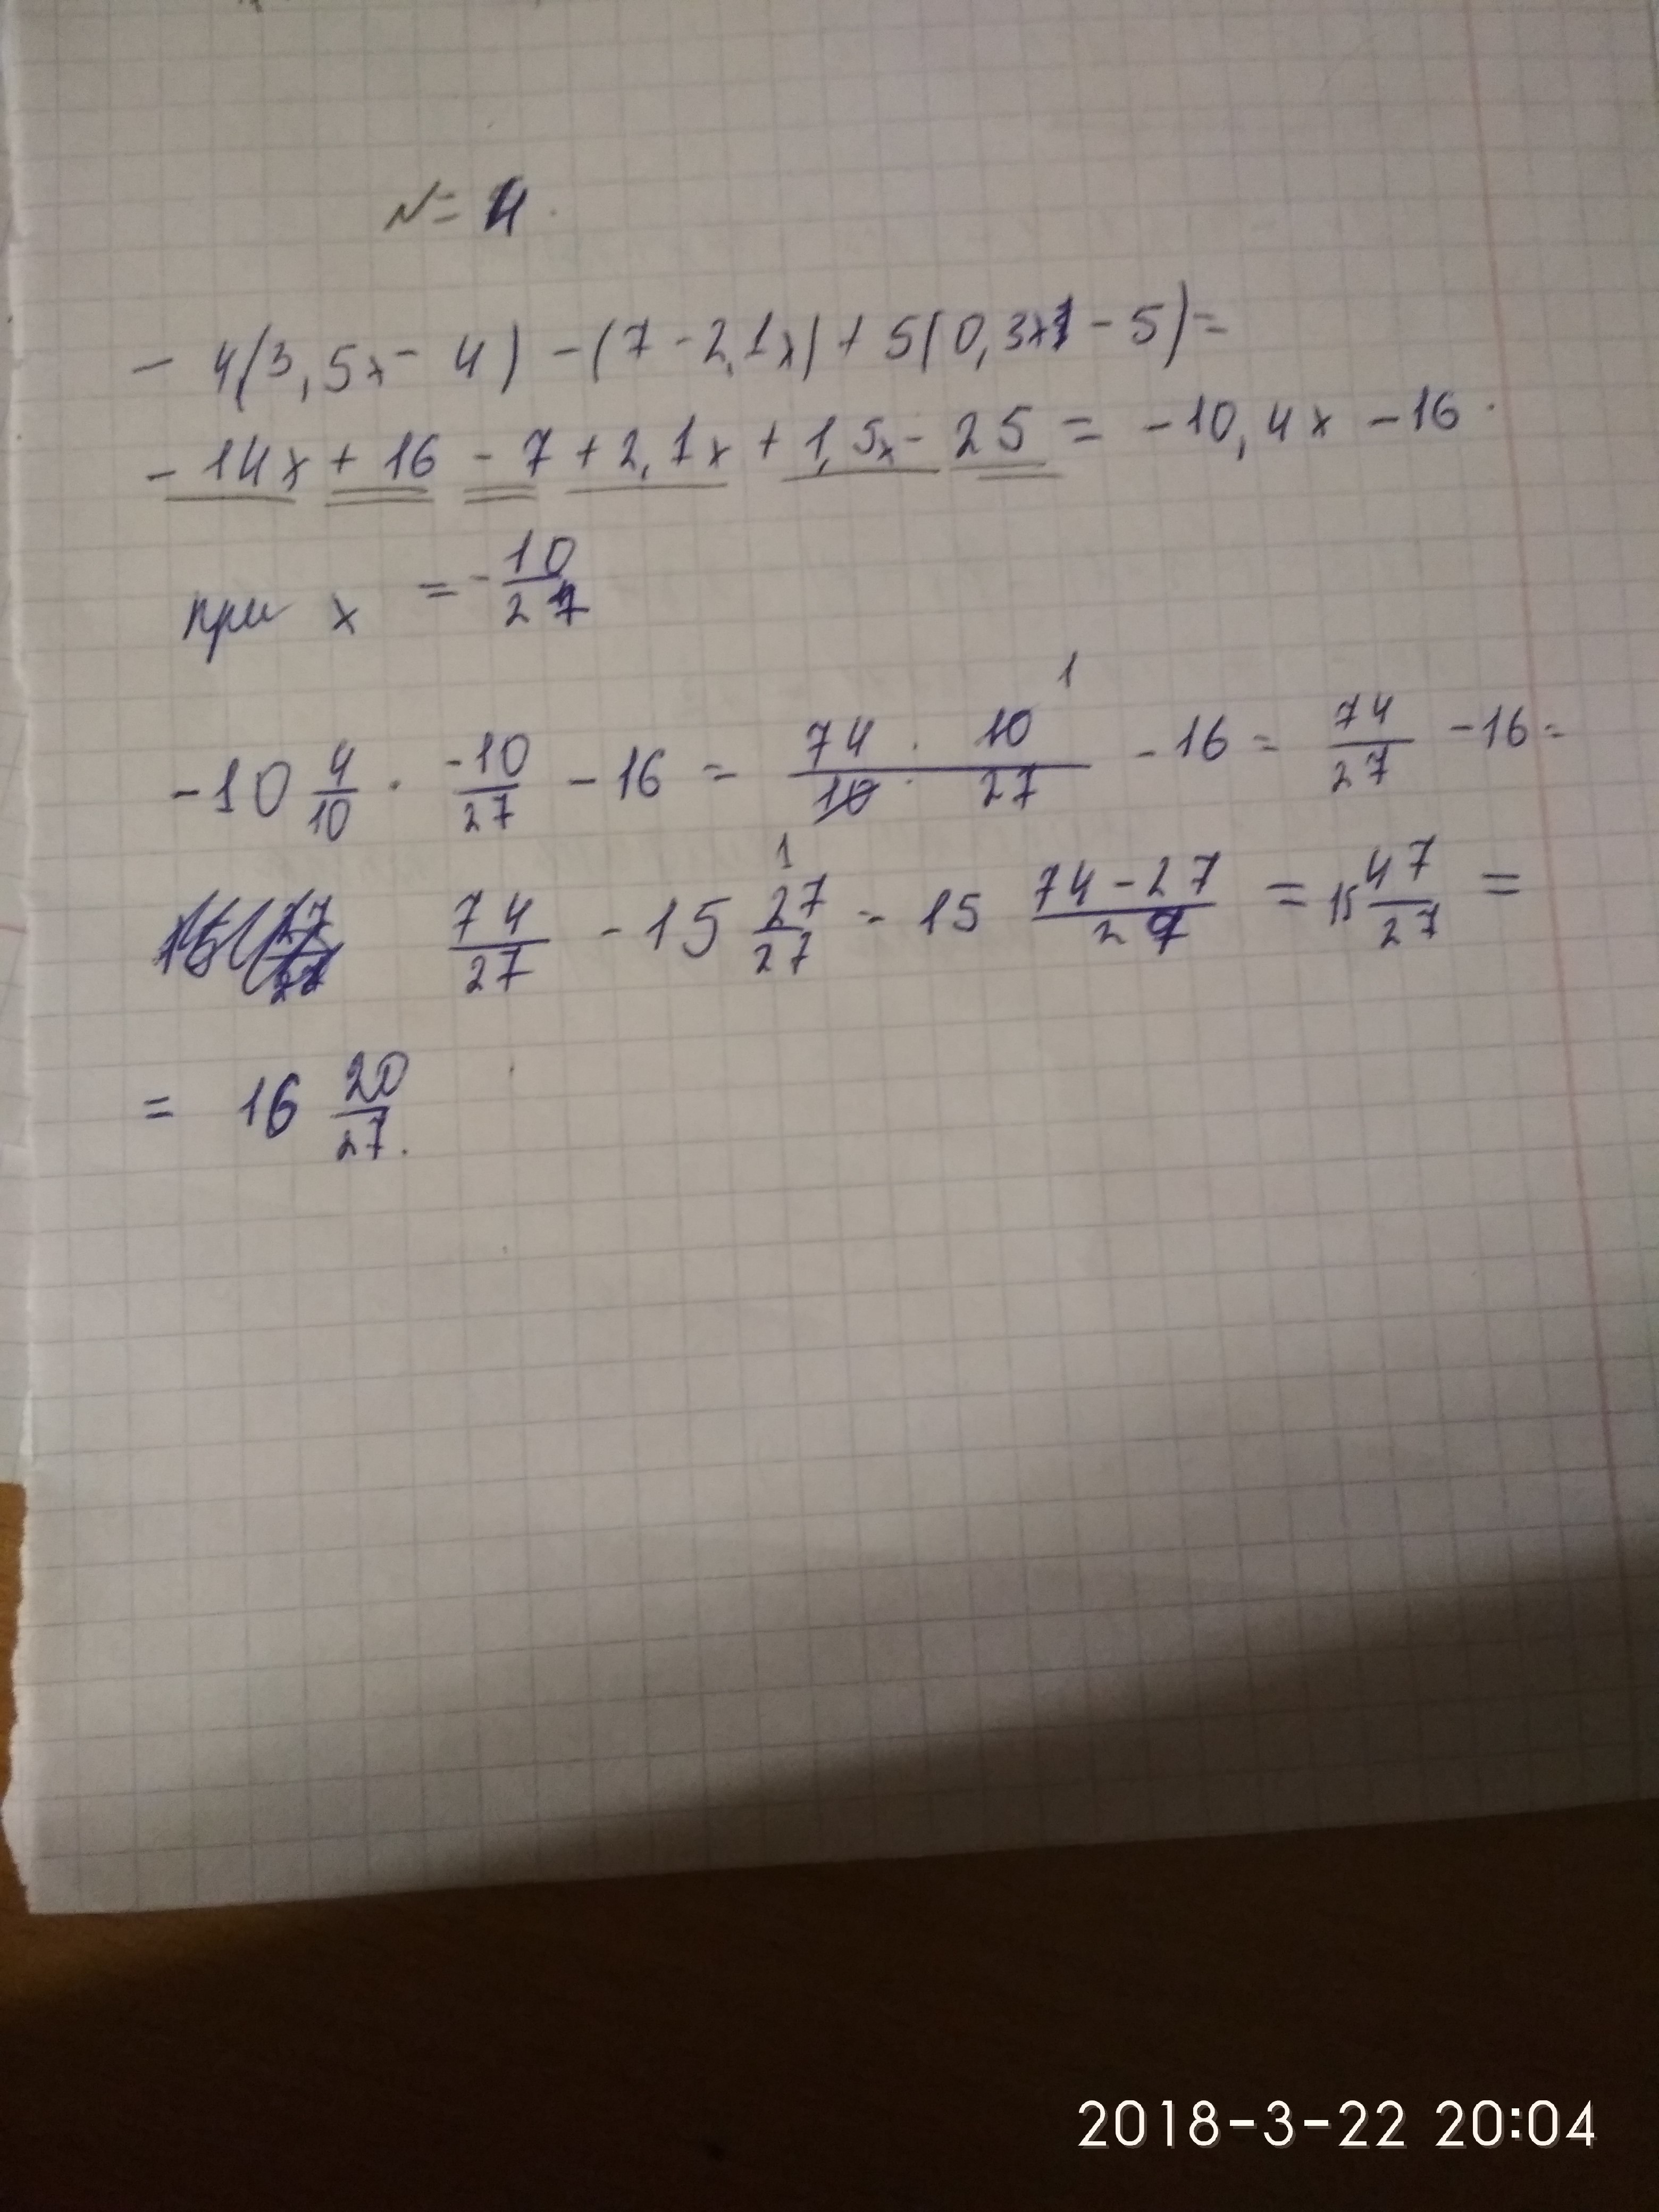 № 4.
- 4(3,5x - 4) - (7 - 2,1x) + 5(0,3x - 5) =
- 14x + 16 - 7 + 2,1x + 1,5x - 25 = - 10,4x - 16.
при x = - 10/27
- 10 4/10 · -10/27 - 16 = 74 · 10 1 / 10 · 27 - 16 = 74/27 - 16 =
74/27 - 15 1 27/27 = 15 74-27/27 = 15 47/27 =
= 16 20/27.
2018-3-22 20:04